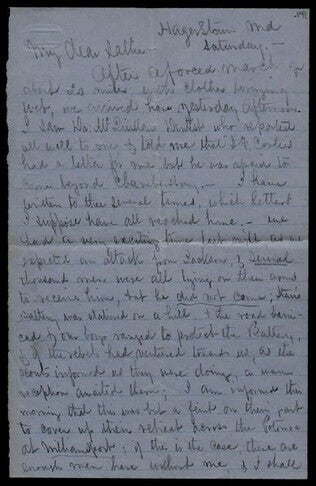 Hagerstown Md
Saturday. —
My Dear Father
After a forced march of
about 20 miles, with clothes wringing
wet, we arrived here yesterday afternoon
I saw Dr. McLindlins Dentist who reported
all well to me & told me that S. Corliss
had a letter for me but he was afraid to
come beyond Chambersburg. — I have
written to thee several times, which letters
I suppose have all reached home. — We
had a very exciting time last night as we
expected an attack from Jackson, & several
thousand men were all lying on their arms
to receive him, but he did not come;
battery was stationed on a hill & the road
of our boys ranged to protect the Battery,
& if the rebels had ventured towards us, as the
scouts informed us they were doing, a warm
reception awaited them; I am informed this
morning that this was but a feint on their part
to cover up their retreat across the Potomac
at Williamsport; if this is the case, there are
enough men here without me, & I shall